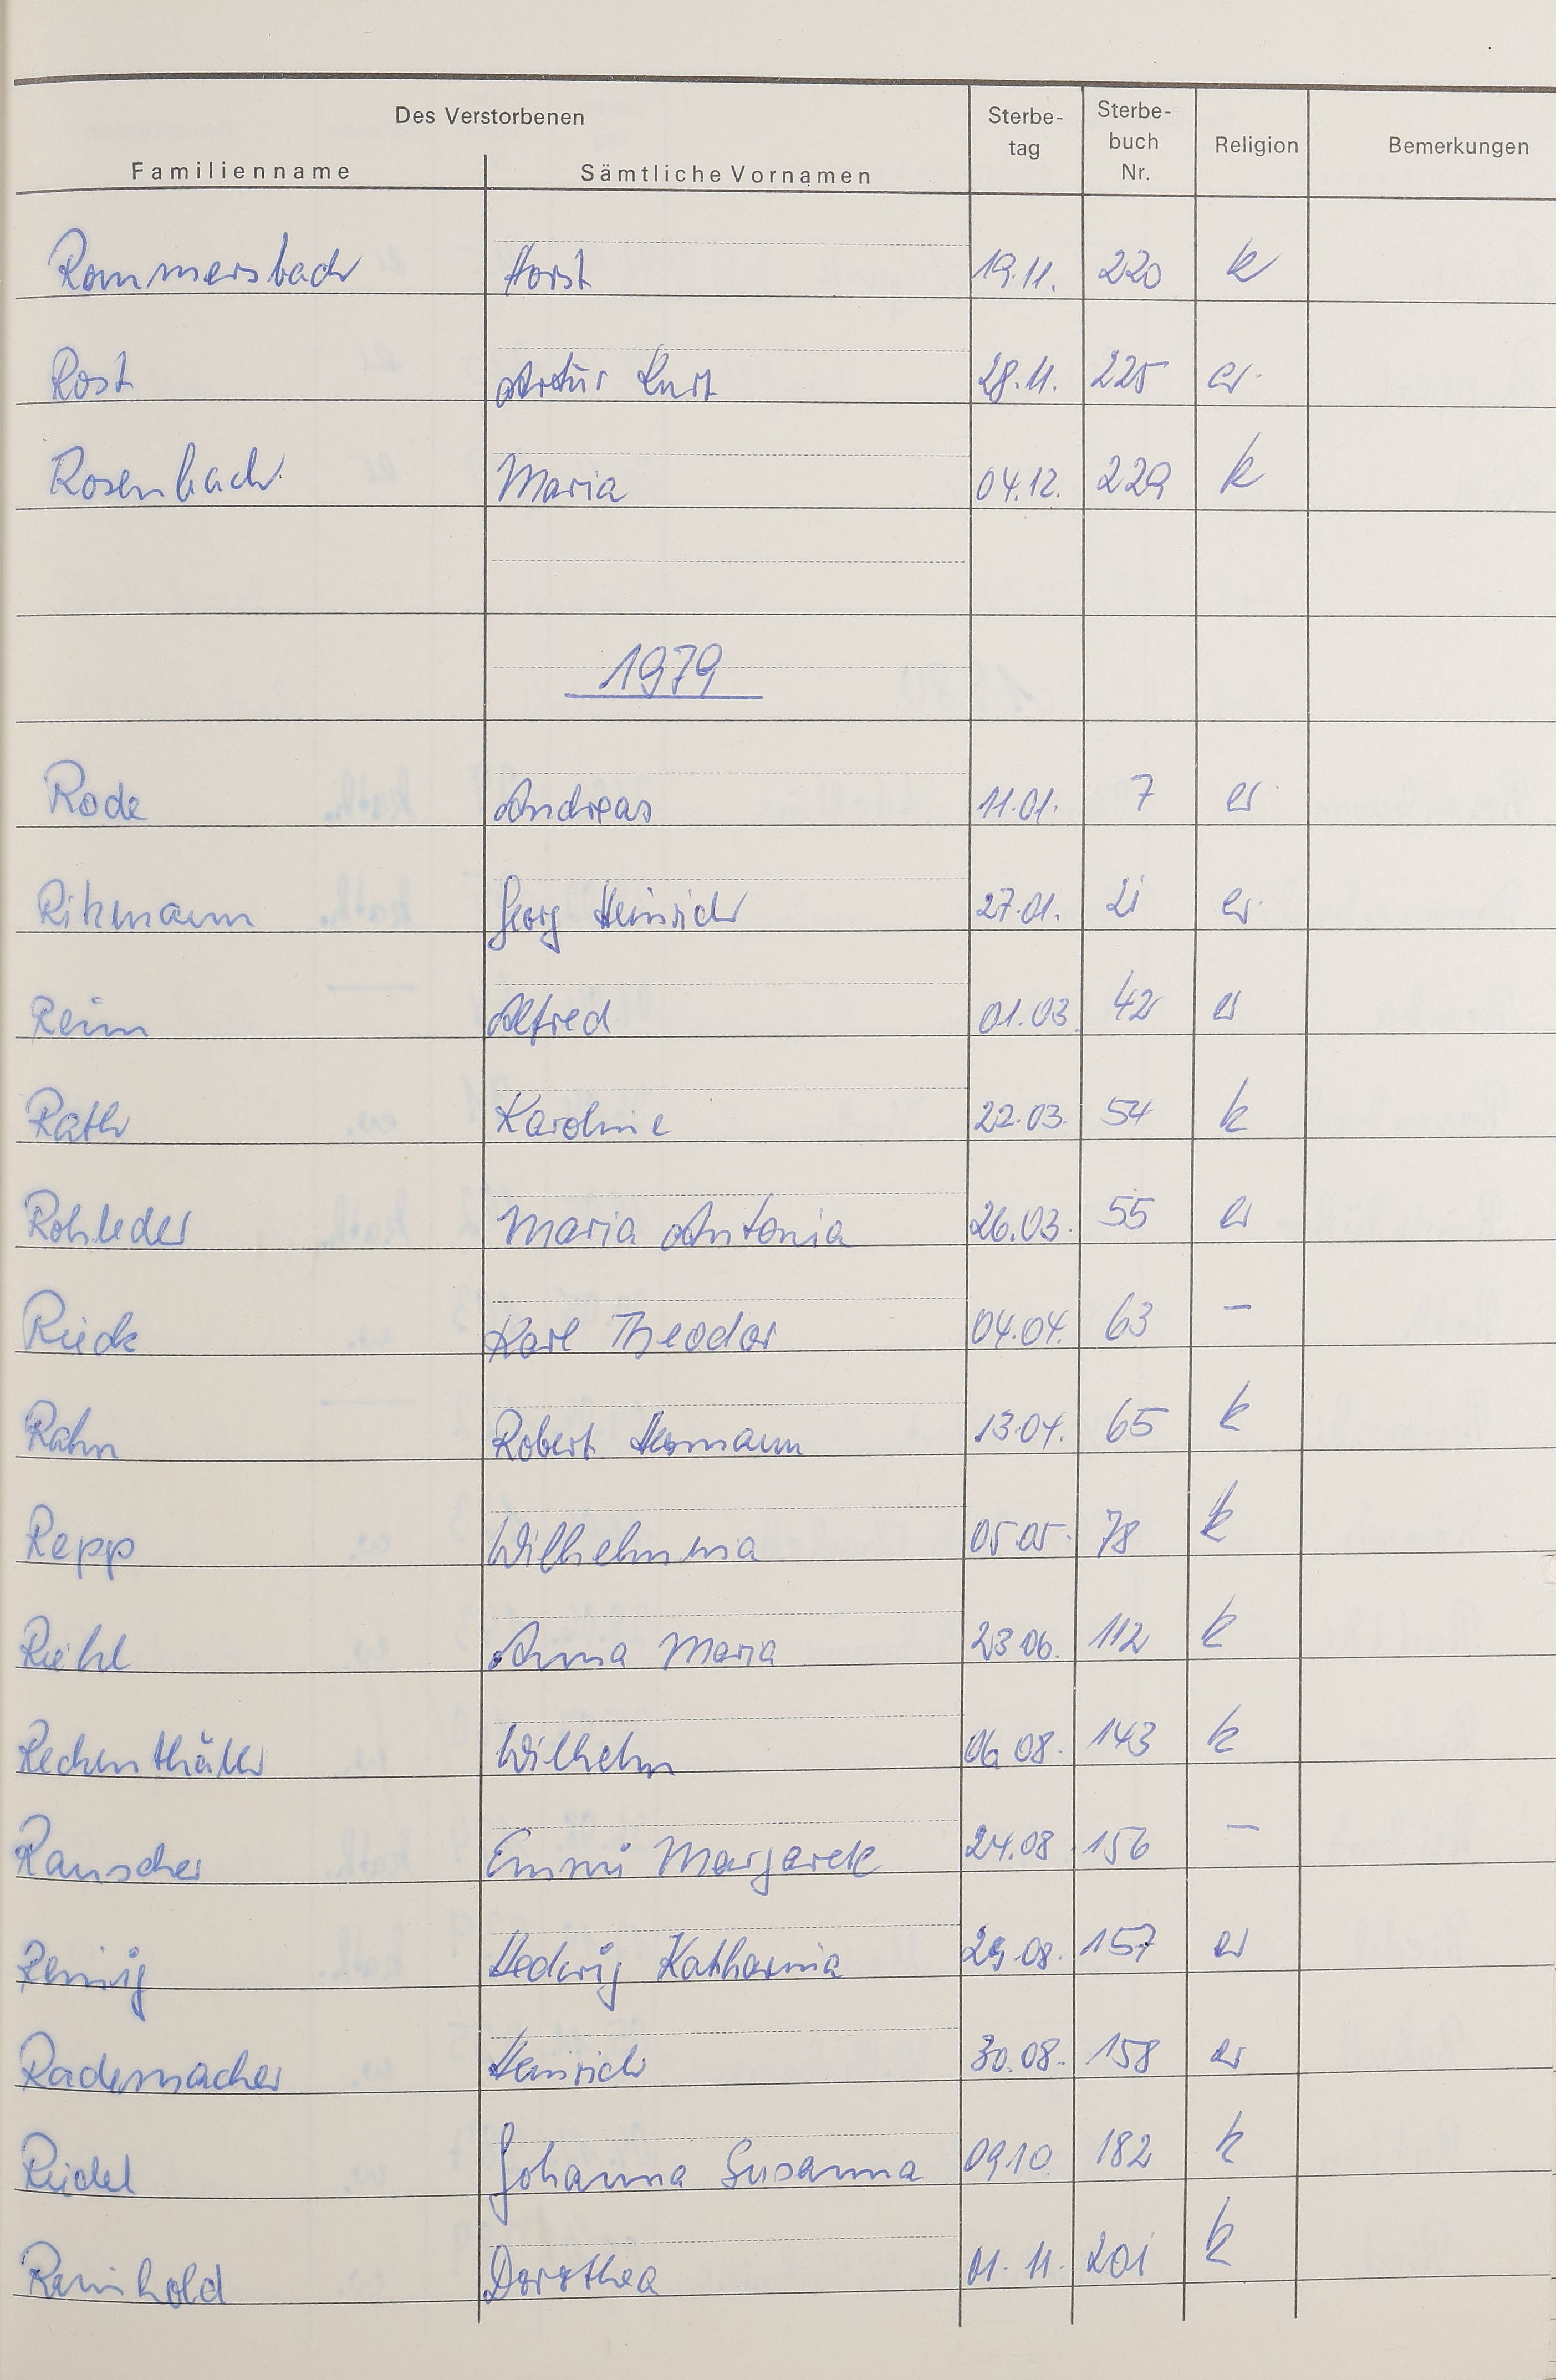 Des Verstorbenen
Sterbe-
tag
Sterbe-
buch
Nr.
Religion
Bemerkungen
Familienname
Sämtliche Vornamen
Rommersbach Horst 19.11. 220 k
Rost Artur Kurt 28.11. 225 ev.
Rosenbach Maria 04.12. 229 k
1979
Rode Andreas 11.01. 7 ev
Ritzmann Georg Heinrich 27.01. 21 ev.
Reim Alfred 01.03. 42 ev
Rath Karoline 22.03. 54 k
Rohleder Maria Antonia 26.03. 55 ev
Rieck Karl Theodor 04.04. 63 –
Rahn Robert Hermann 13.04. 65 k
Repp Wilhelmina 05.05. 78 k
Riehl Anna Maria 23.06. 112 k
Rechenthäler Wilhelm 06.08. 143 k
Rauscher Emmi Margarete 24.08 156 –
Reinig Hedwig Katharina 29.08. 157 ev
Rademacher Heinrich 30.08. 158 ev
Riedel Johanna Susanna 09.10. 182 k
Reinhold Dorothea 01.11. 201 k